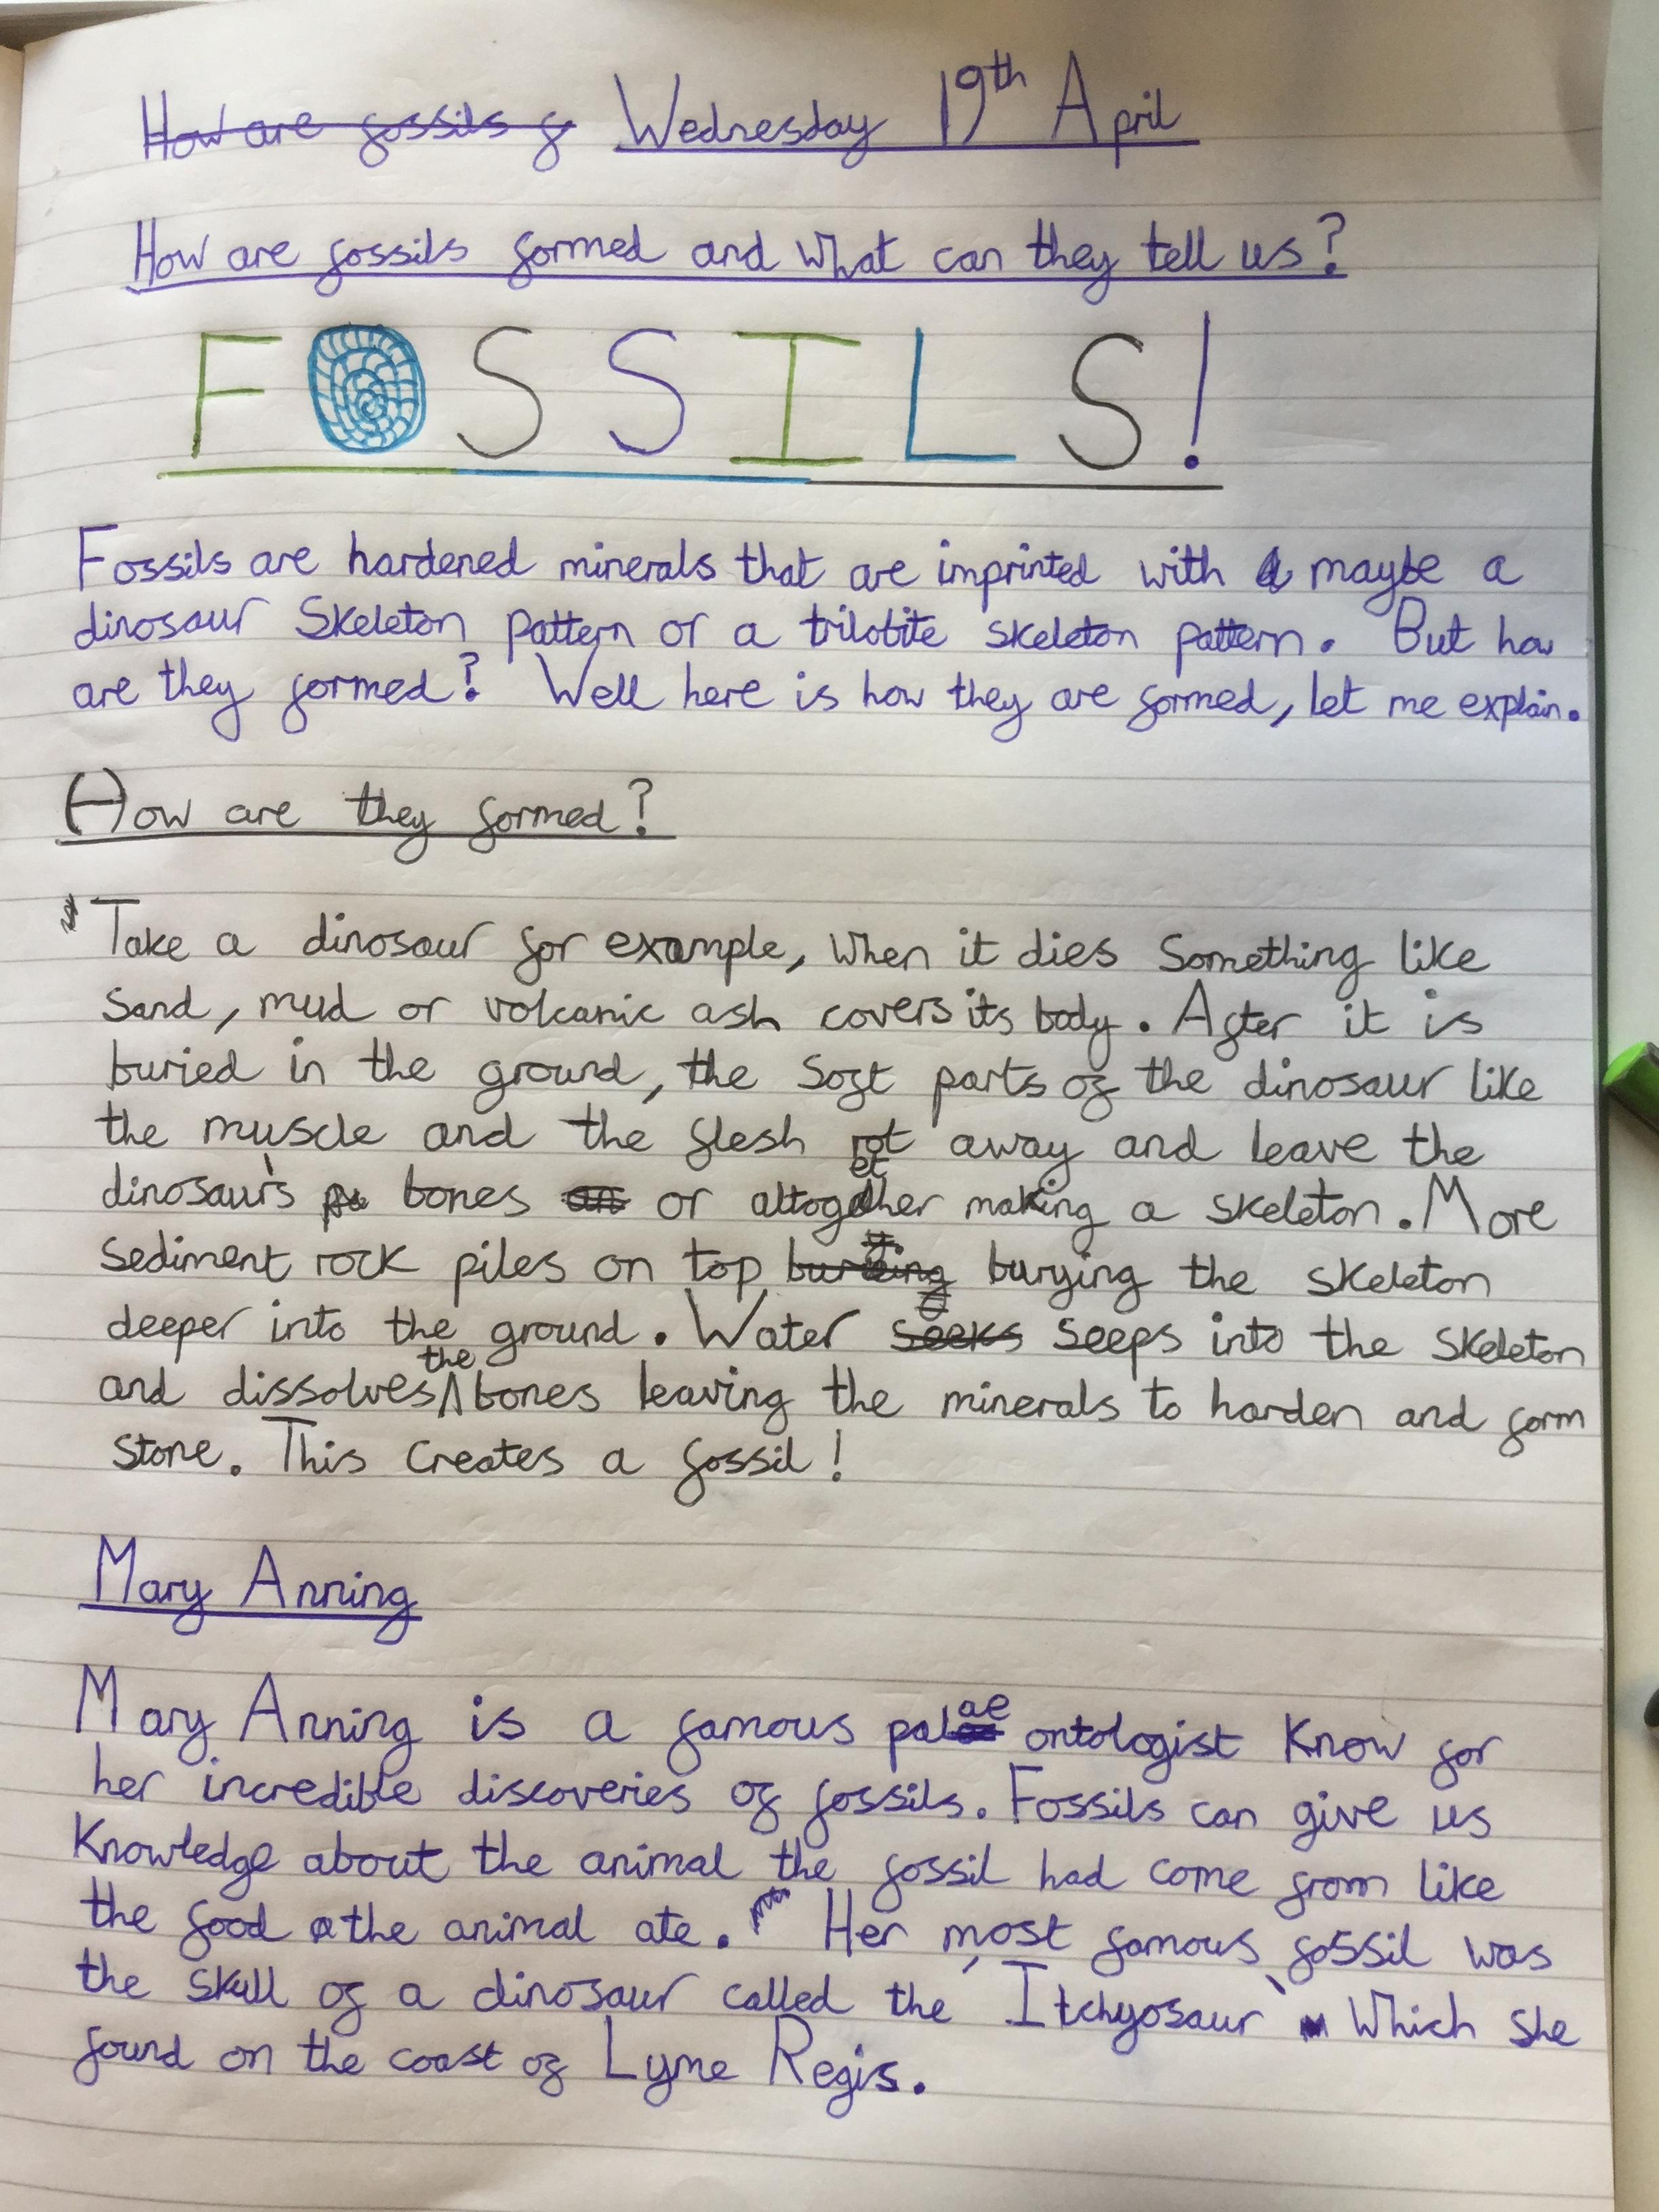 How are fossils f Wednesday 19th April
How are fossils formed and what can they tell us?
FOSSILS!
Fossils are hardened minerals that are imprinted with a maybe a
dinosaur skeleton pattern or a trilobite skeleton pattern. But how
are they formed? Well here is how they are formed, let me explain.
How are they formed?
Take a dinosaur for example, when it dies something like
sand, mud or volcanic ash covers its body. After it is
buried in the ground, the soft parts of the dinosaur like
the muscle and the flesh rot away and leave the
dinosaur's bones an or altogether making a skeleton. More
sediment rock piles on top burying the skeleton
deeper into the ground. Water seeks seeps into the skeleton
and dissolves the bones leaving the minerals to harden and form
stone. This creates a fossil!
Mary Anning
Mary Anning is a famous palaeontologist know for
her incredible discoveries of fossils. Fossils can give us
knowledge about the animal the fossil had come from like
the food the animal ate. Her most famous fossil was
the skull of a dinosaur called the 'Itchyosaur' which she
found on the coast of Lyme Regis.